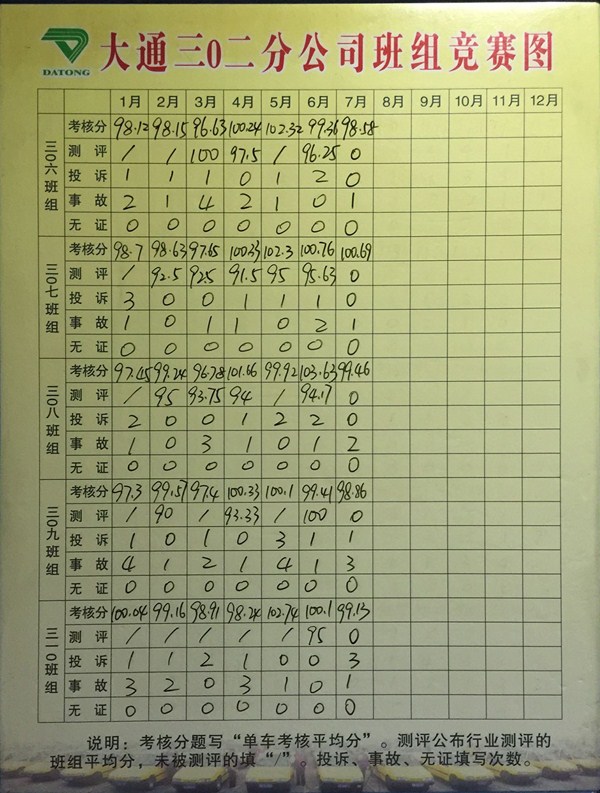 DATONG
大通三0二分公司班组竞赛图
1月 2月 3月 4月 5月 6月 7月 8月 9月 10月 11月 12月
三〇六班组
考核分 98.12 98.15 96.63 100.24 102.32 99.36 98.58
测评 / / 100 97.5 / 96.25 0
投诉 1 1 1 0 1 2 0
事故 2 1 4 2 1 0 1
无证 0 0 0 0 0 0 0
三〇七班组
考核分 98.7 98.63 97.65 100.33 102.3 100.76 100.69
测评 / 92.5 92.5 91.5 95 95.63 0
投诉 3 0 0 1 1 1 0
事故 1 0 1 1 0 2 1
无证 0 0 0 0 0 0 0
三〇八班组
考核分 97.45 99.24 96.78 101.66 99.92 103.63 99.46
测评 / 95 93.75 94 / 94.17 0
投诉 2 0 0 1 2 2 0
事故 1 0 3 1 0 1 2
无证 0 0 0 0 0 0 0
三〇九班组
考核分 97.3 99.57 97.4 100.33 100.1 99.41 98.86
测评 / 90 / 93.33 / 100 0
投诉 1 0 1 0 3 1 1
事故 4 1 2 1 4 1 3
无证 0 0 0 0 0 0 0
三一〇班组
考核分 100.04 99.16 98.91 98.24 102.74 100.1 99.13
测评 / / / / / 95 0
投诉 1 1 2 1 0 0 3
事故 3 2 0 3 1 0 1
无证 0 0 0 0 0 0 0
说明：考核分题写“单车考核平均分”。测评公布行业测评的
班组平均分，未被测评的填“/”。投诉、事故、无证填写次数。